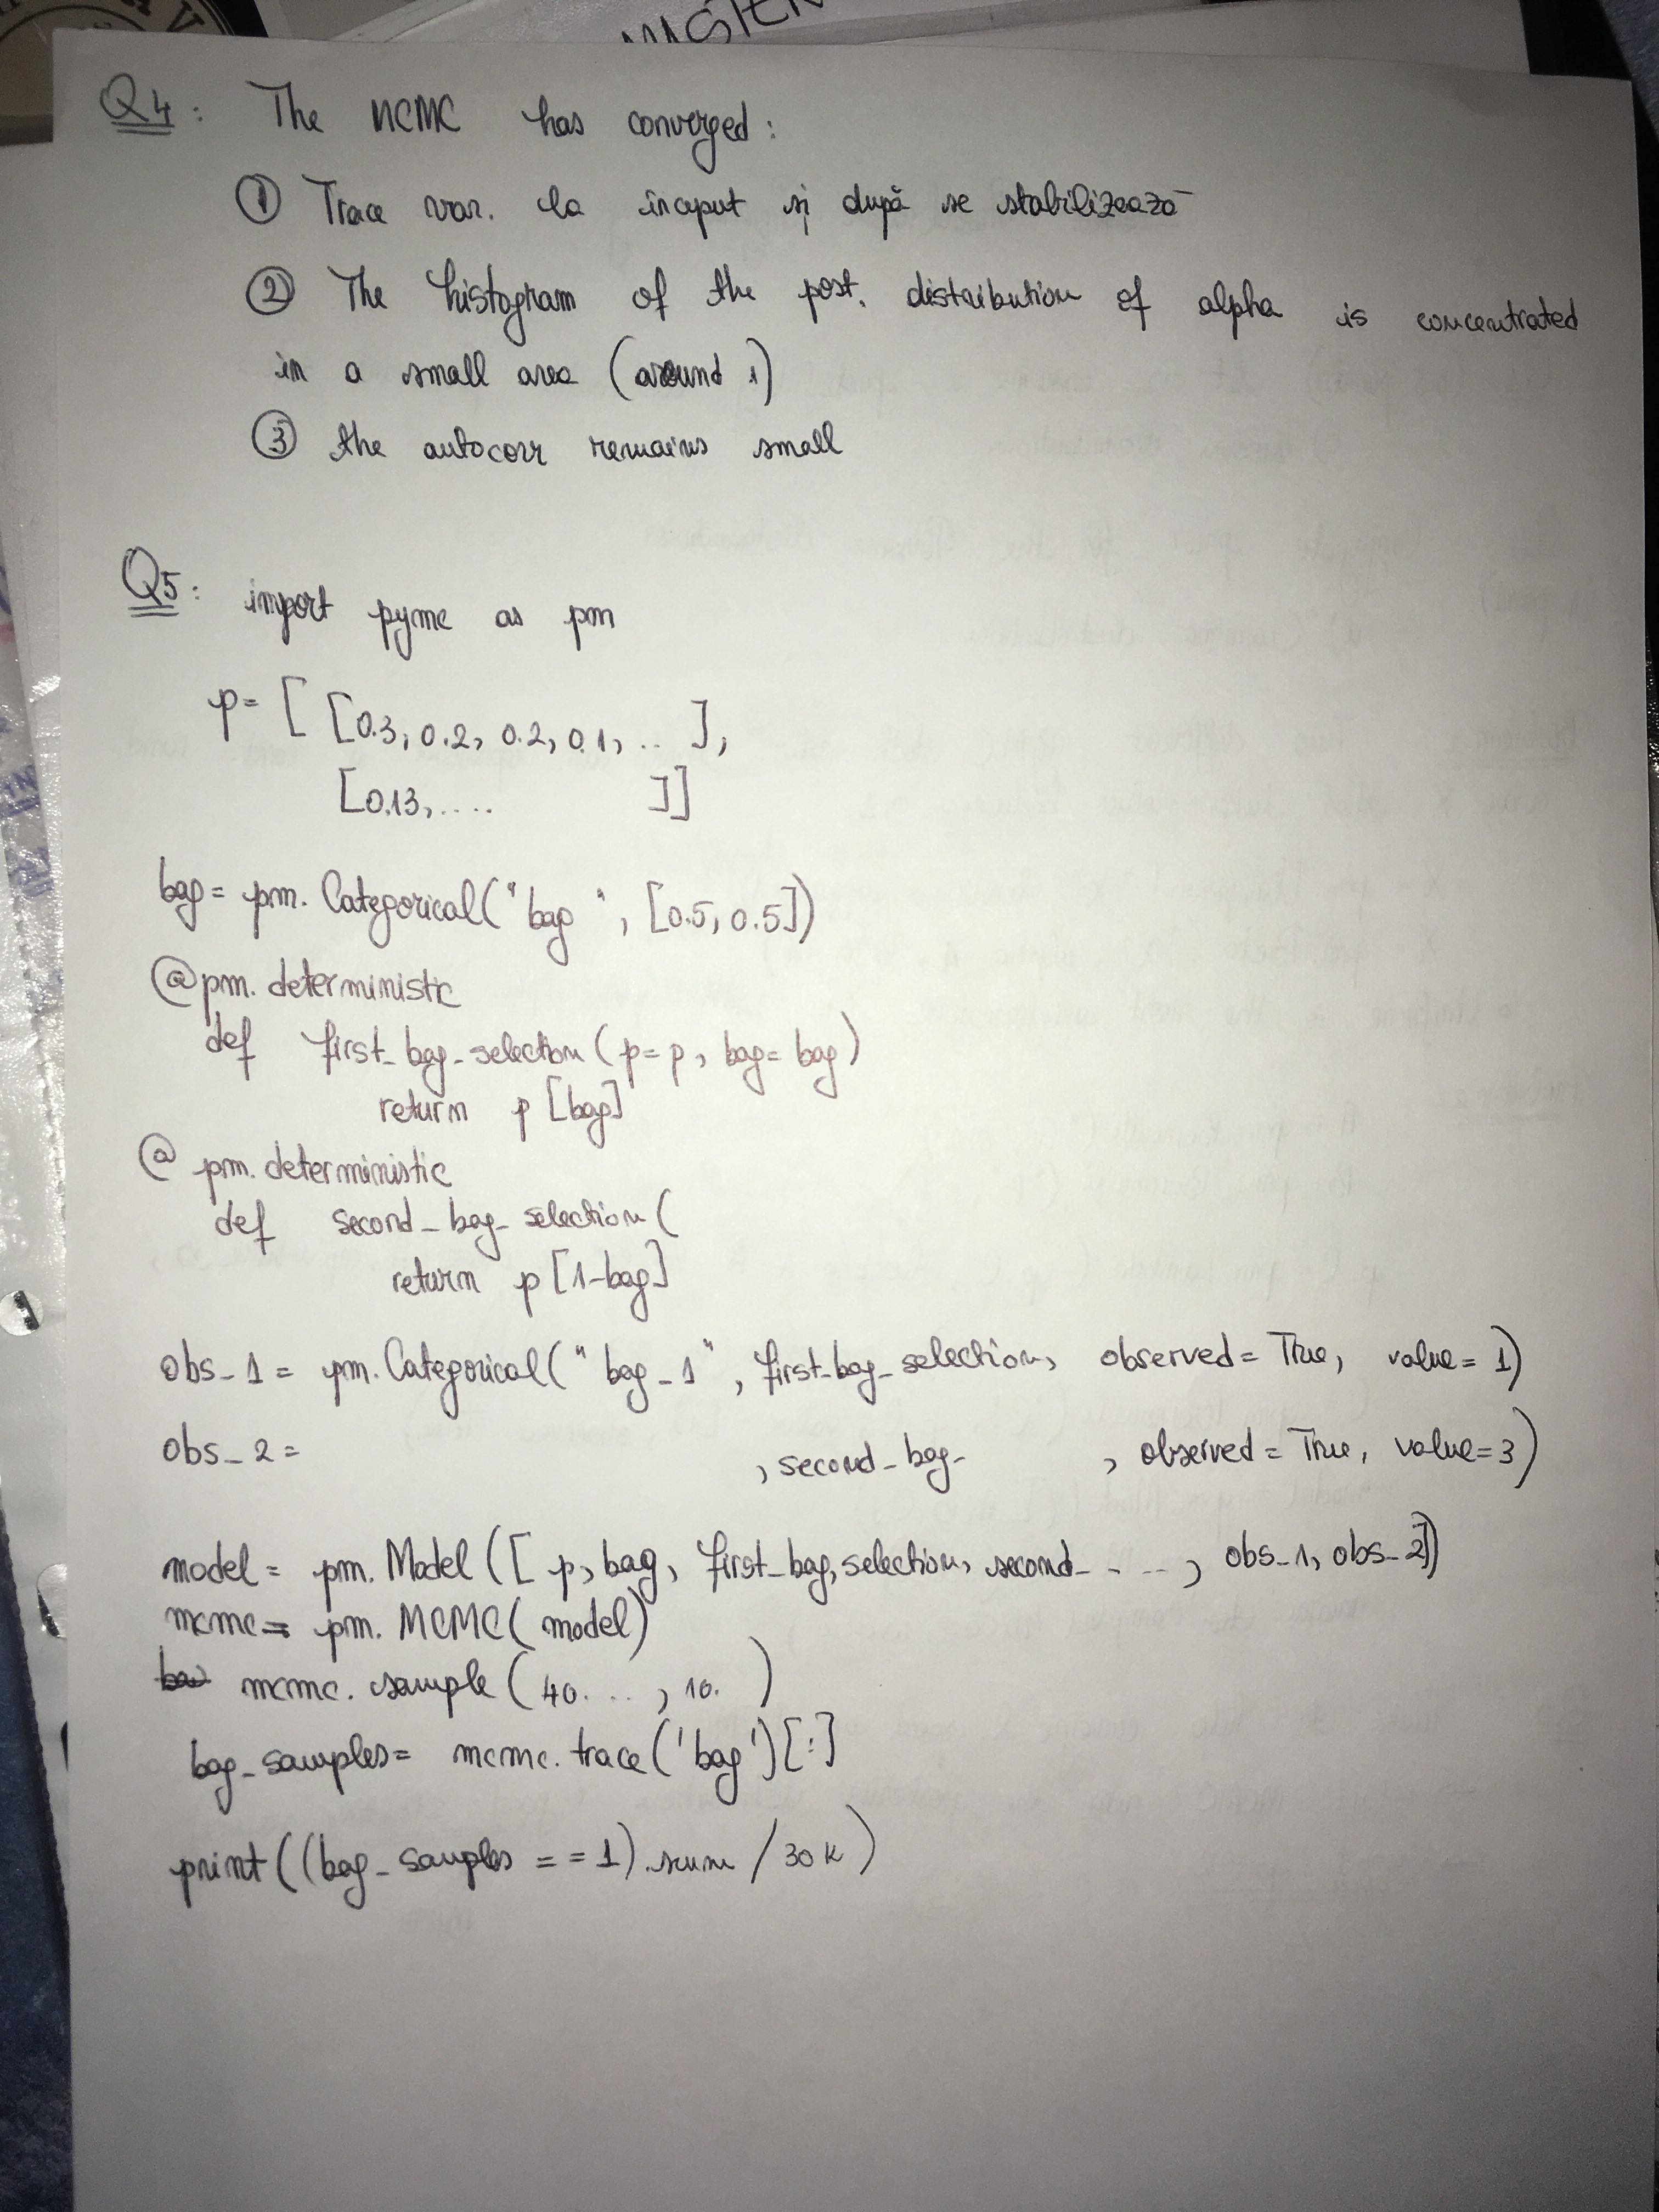 Q4: The MCMC has converged:
① Trace var. la început și după se stabilizează
② The histogram of the post. distribution of alpha is concentrated
in a small area (around 1)
③ the autocorr remains small
Q5: import pymc as pm
p= [ [0.3, 0.2, 0.2, 0.1, .. ],
[0.13, .... ]]
bag= pm. Categorical("bag", [0.5, 0.5])
@pm. deterministic
def first_bag_selection(p=p, bag=bag)
return p[bag]
@ pm. deterministic
def second_bag_selection(
return p[1-bag]
obs_1 = pm. Categorical("bag_1", first_bag_selection, observed = True, value = 1)
obs_2 = , second_bag_ , observed = True, value=3)
model = pm. Model ([ p, bag, first_bag_selection, second_ - --, obs_1, obs_2])
mcmc= pm. MCMC( model)
mcmc. sample ( 40. .. , 10. )
bag_samples= mcmc. trace('bag')[:]
print((bag_samples == 1).sum / 30k)